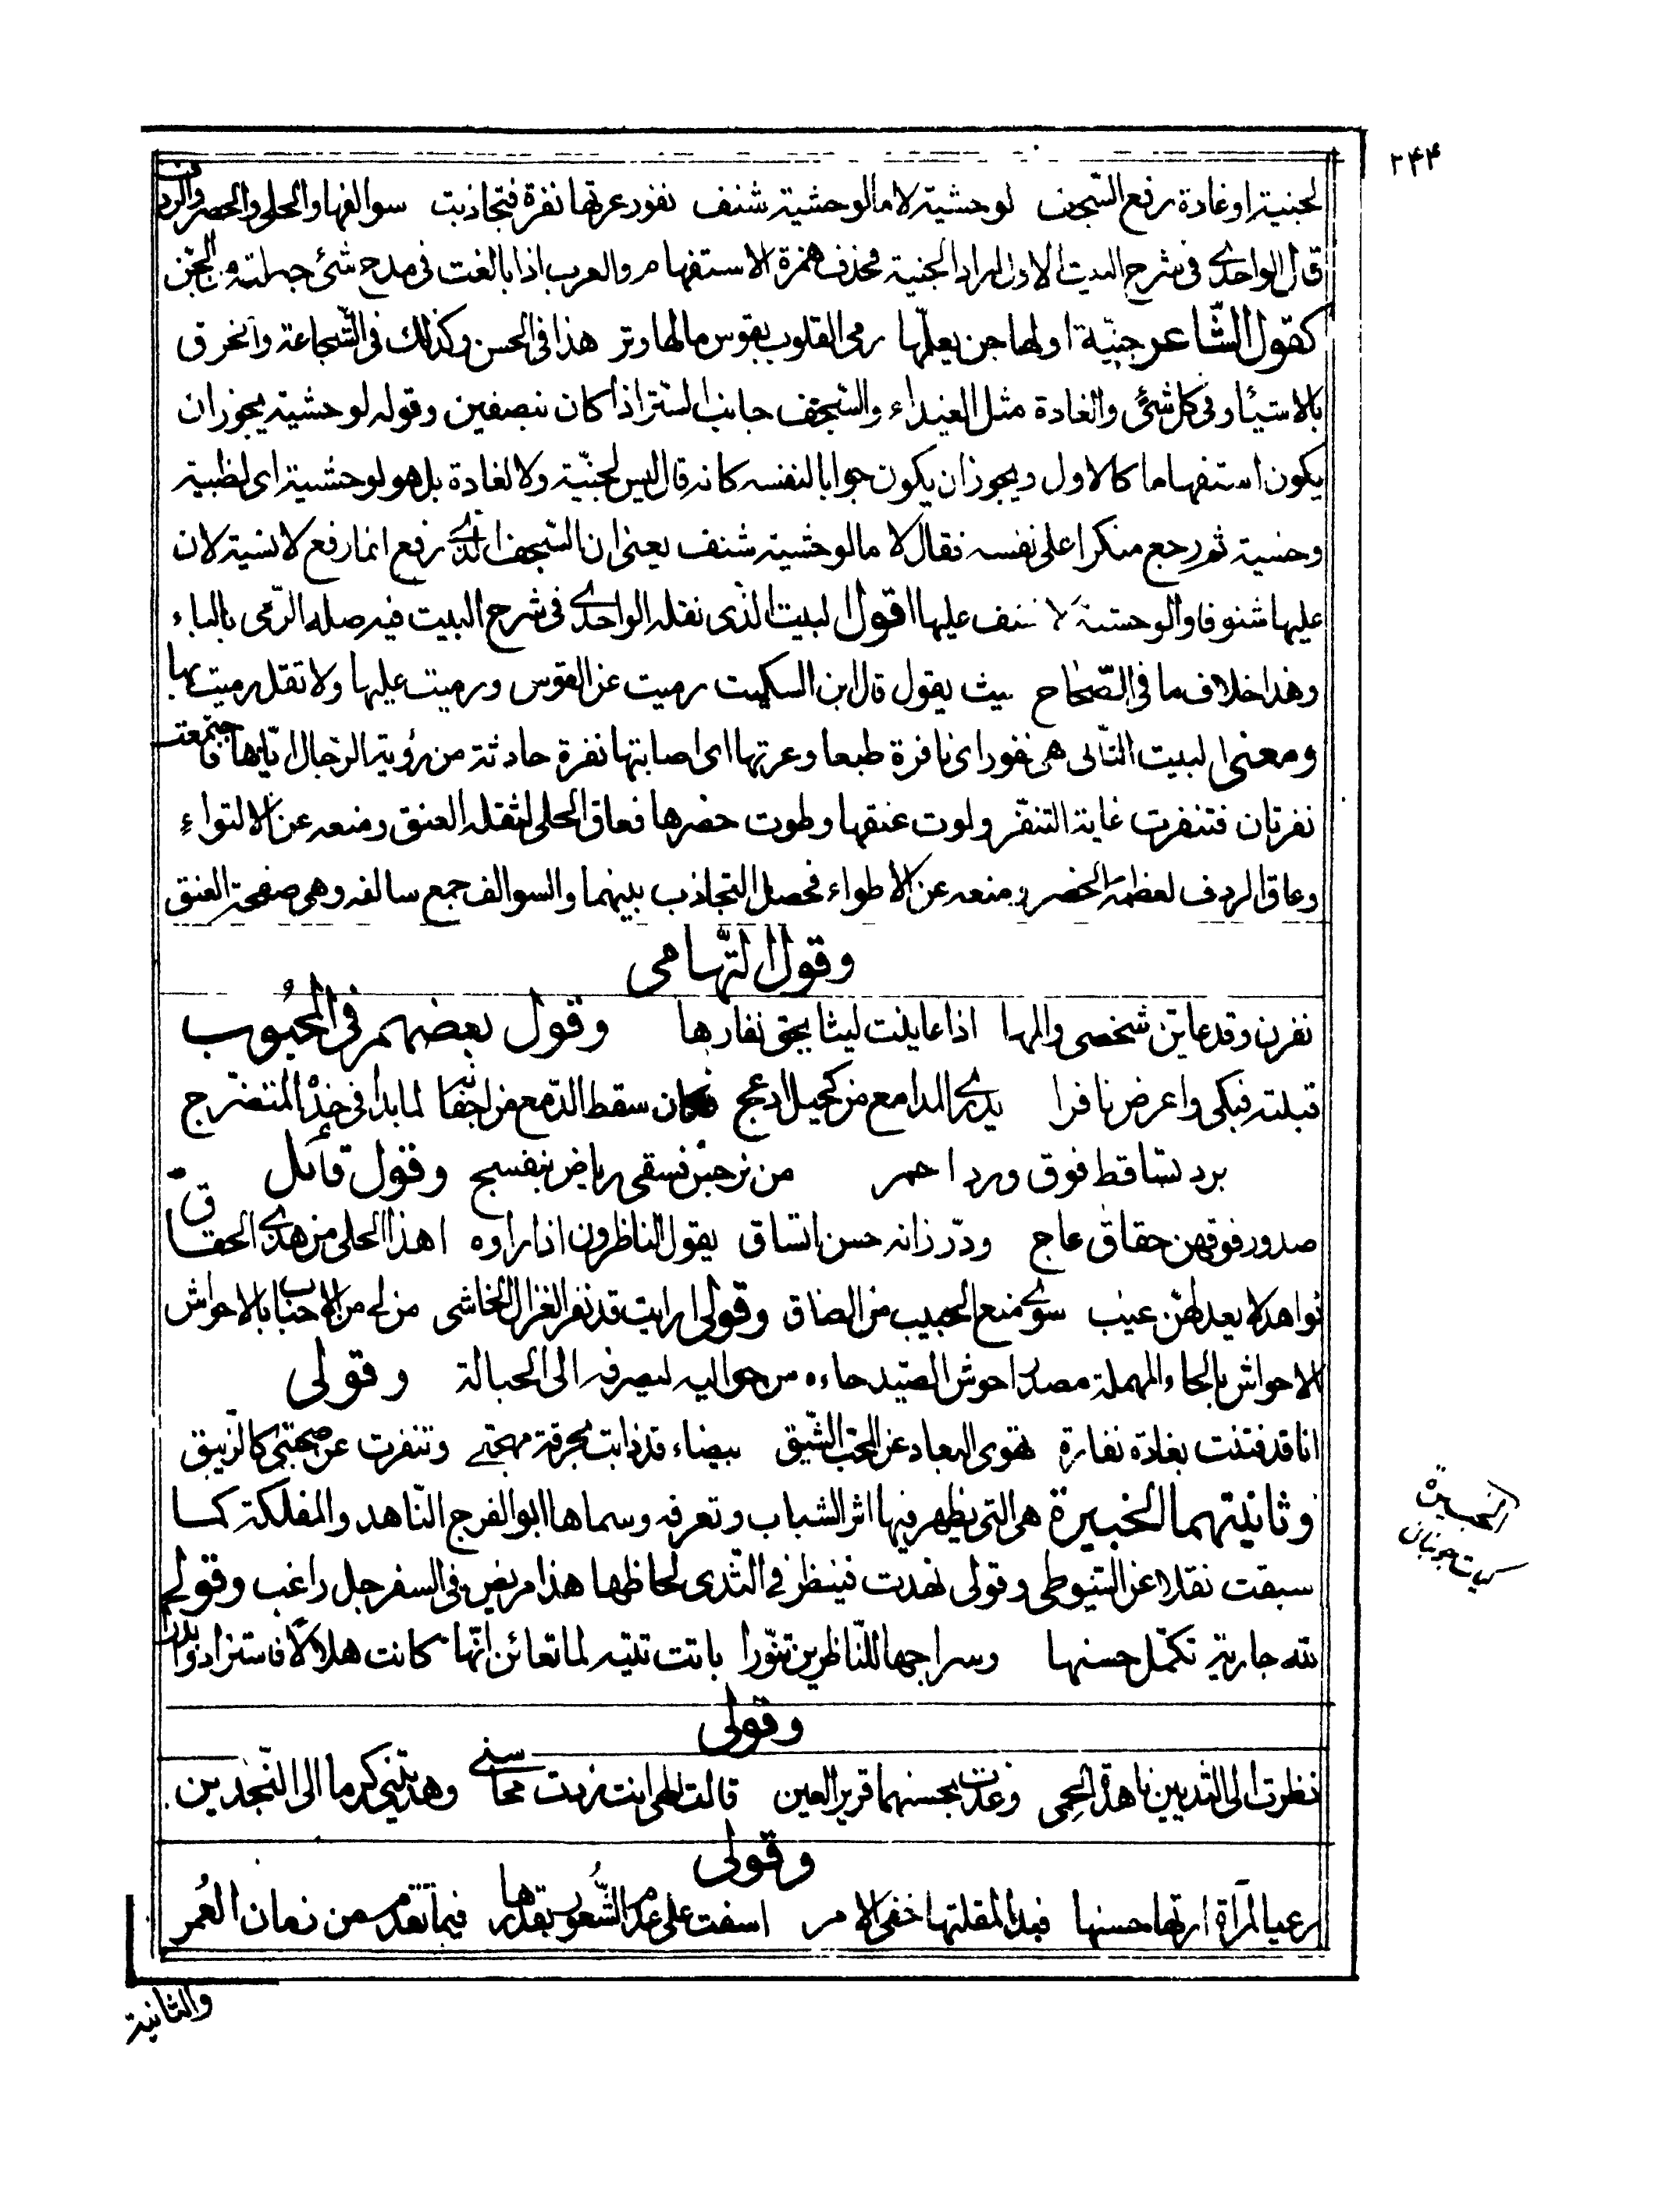 ۲۴۴
لجنية او غادة رفع السّجف لوحشية لا ما لوحشية شنف نفور عرتها نفرة فتجاذبت سوالفها والحلى والخصر والردف
قال الواحدى فى شرح البيت الاول اراد الجنية فحذف همزة الاستفهام والعرب اذا بالغت فى مدح شئ جعلته من الجن
كقول الشّاعر جنيّة او لها جن يعلّمها رمى القلوب بقوس مالها وتر هذا فى الحسن وكذلك فى الشّجاعة والخرق
بالاشياء وفى كل شئ والغادة مثل الغيداء والسّجف جانب الستر اذا كان بنصفين وقوله لوحشية يجوز ان
يكون استفهاما كالاول ويجوز ان يكون جوابا لنفسه كانه قال ليس لجنيّة ولا لغادة بل هو لوحشية اى لظبية
وحشية ثم رجع منكرا على نفسه فقال لا ما لوحشية شنف يعنى ان السّجف الذى رفع انما رفع لانسية لان
عليها شنوفا والوحشية لا شنف عليها اقول البيت الذى نقله الواحدى فى شرح البيت فيه صلة الرّمى بالباء
وهذا خلاف ما فى الصّحاح حيث يقول قال ابن السكيت رميت عن القوس ورميت عليها ولا تقل رميت بها
ومعنى البيت الثّانى هى نفور اى نافرة طبعا وعرتها اى اصابتها نفرة حادثة من رؤية الرّجال ايّاها فاجتمعت
نفرتان فتنفرت غاية التنفّر ولوت عنقها وطوت خصرها فعاق الحلى لثقله العنق ومنعه عن الالتواء
وعاق الردف لعظمه الخصر ومنعه عن الاطواء فحصل التجاذب بينهما والسوالف جمع سالفه وهى صفحة العنق
وقول التّهامى
نفرن وقد عاينّ شخصى والمها اذا عاينت ليثا يحق نفارها وقول بعضهم فى المحبُوب
قبلته فبكى واعرض نافرا يذرى المدامع من كحيل ادعج فكان سقط الدّمع من اجفانه لما بدا فى خدّه المتضرّج
برد تساقط فوق ورد احمر من نرجس فسقى رياض بنفسج وقول قائل
صدور فوقهن حقاق عاج ودرّ زانه حسن اتساق يقول الناظرون اذا راوه اهذا الحلى من هذى الحقاق
نواهد لا يعد لهنّ عيب سوى منع الحبيب من العناق وقولى ارايت قد نفر الغزال الخاشى من لى من الاحباب بالاحواش
الاحواش بالحاء المهملة مصدر احوش الصّيد جاءه من حواليه ليصرفه الى الحبالة وقولى
انا قد فتنت بغادة نفارة تهوى البعاد عن المحب الشّيق بيضاء قد ذابت بحرقة مهجتى وتنفرت عن صحبتى كالزّيبق
وثانيتهما الخبيرة هى التى يظهر فيها اثر الشباب وتعرفه وسماها ابو الفرج النّاهد والمفلكة كما
سبقت نقلا عن السّيوطى وقولى نهدت فينظر فى الثّدى لحاظها هذا مريض فى السفرجل راغب وقولى
لله جارية تكمّل حسنها وسراجها للنّاظرين تنوّرا باتت تتيه لما تعائن انّها كانت هلالا فاستزاد وابدرا
وقولى
نظرت الى الثديين ناهدة الحمى وغدت بحسنهما قرير العين قالت الهى انت زدت محاسنى وهديتنى كرما الى النّجدين
وقولى
رعيا لمرآة ارتها حسنها فبدا لمقلتها خفى الامر اسفت على عدم الشّعور بقدرها فيما تقدّم من زمان العُمر
والثانية
الخبيرة